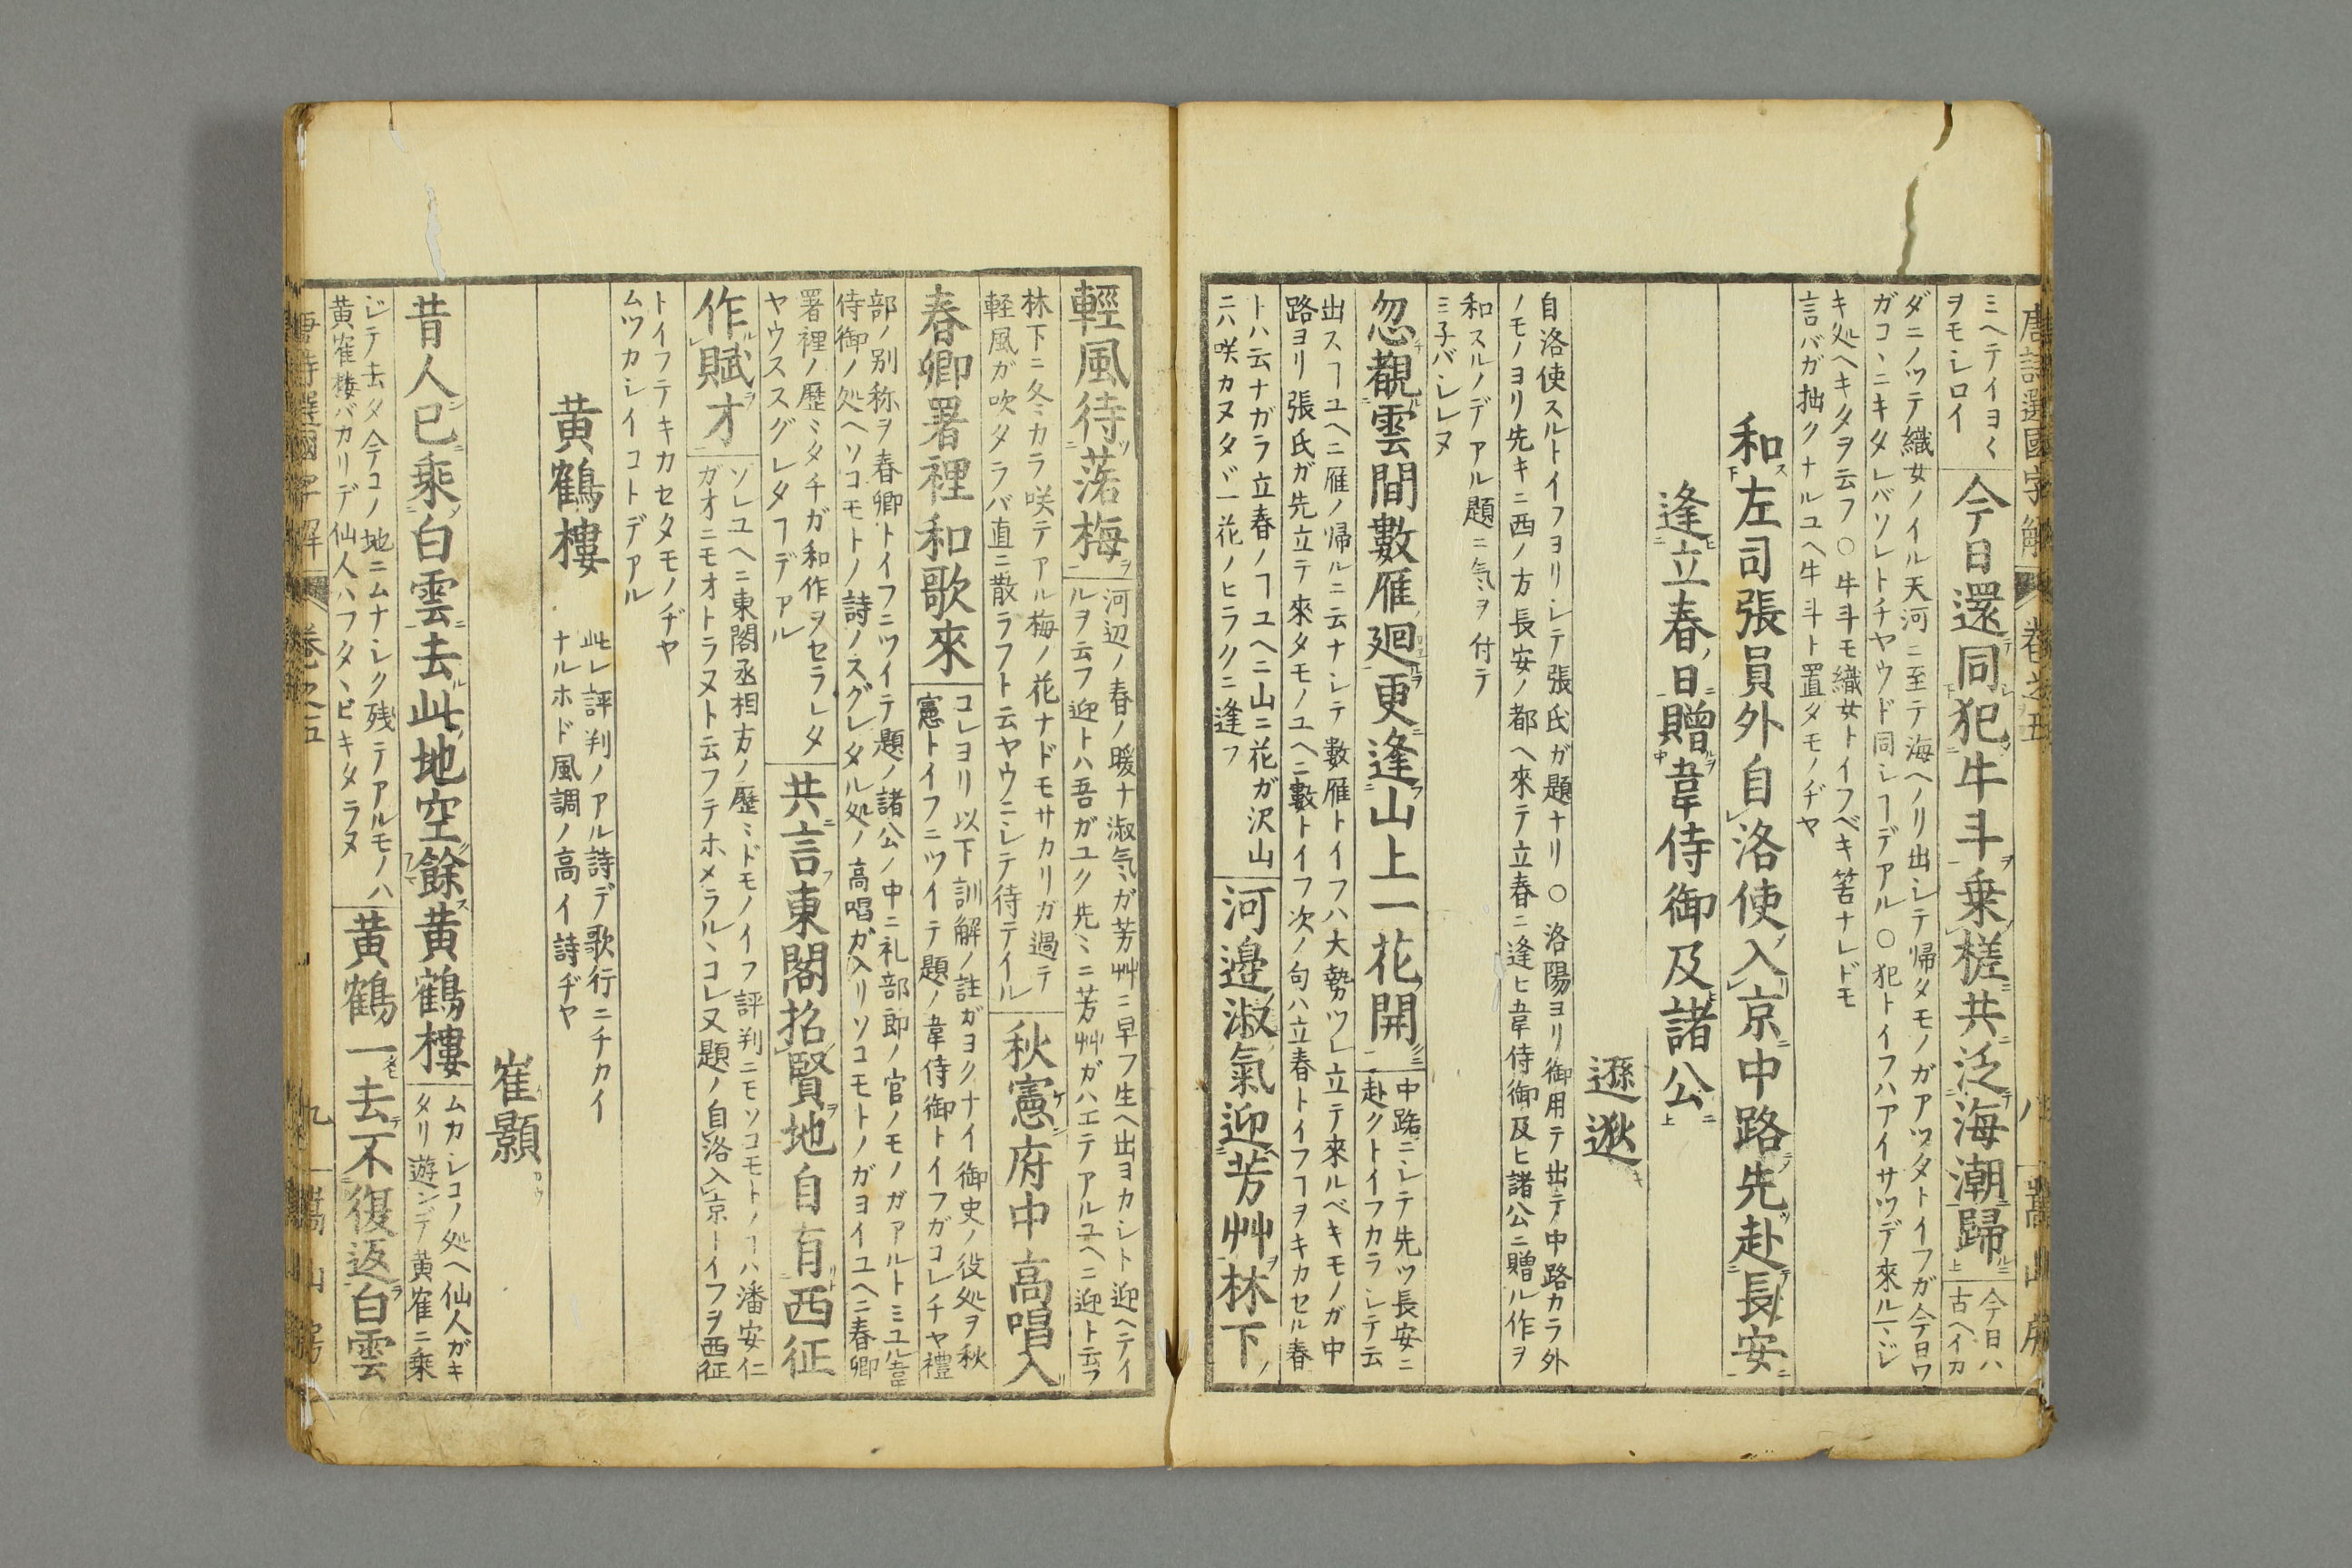 唐詩選國字解 卷之五 八 嵩山房
ミヘテイヨく
ヲモシロイ
今日還同犯牛斗乗槎共泛海潮歸
今日ハ
古ヘイカ
ダニノツテ織女ノイル天河ニ至テ海ヘノリ出シテ帰タモノガアツタトイフガ今日ワ
ガコヽニキタレバソレトチヤウド同シヿデアル〇犯トイフハアイサツデ來ルヿヽジ
キ処ヘキタヲ云フ〇牛斗モ織女トイフベキ筈ナレドモ
言バガ拙クナルユヘ牛斗ト置タモノヂヤ
和左司張員外自洛使入京中路先赴長安
逢立春日贈韋侍御及諸公
孫逖
自洛使スルトイフヨリシテ張氏ガ題ナリ〇洛陽ヨリ御用テ出テ中路カラ外
ノモノヨリ先キニ西ノ方長安ノ都ヘ來テ立春ニ逢ヒ韋侍御及ヒ諸公ニ贈ル作ヲ
和スルノデアル題ニ気ヲ付テ
ミ子バシレヌ
忽覩雲間數雁廻更逢山上一花開
中路ニシテ先ツ長安ニ
赴クトイフカラシテ云
出スヿユヘニ雁ノ帰ルニ云ナシテ數雁トイフハ大勢ツレ立テ來ルベキモノガ中
路ヨリ張氏ガ先立テ來タモノユヘニ數トイフ次ノ句ハ立春トイフヿヲキカセル春
トハ云ナガラ立春ノヿユヘニ山ニ花ガ沢山
ニハ咲カヌタヾ一花ノヒラクニ逢フ
河邊淑氣迎芳艸林下
輕風待落梅
河辺ノ春ノ暖ナ淑気ガ芳艸ニ早フ生ヘ出ヨカシト迎ヘテイ
ルヲ云フ迎トハ吾ガユク先ミニ芳艸ガハエテアルユヘニ迎ト云フ
林下ニ冬ミカラ咲テアル梅ノ花ナドモサカリガ過テ
軽風ガ吹タラバ直ニ散ラフト云ヤウニシテ待テイル
秋憲府中高唱入
春卿署裡和歌來
コレヨリ以下訓解ノ註ガヨクナイ御史ノ役処ヲ秋
憲トイフニツイテ題ノ韋侍御トイフガコレチヤ禮
部ノ別称ヲ春卿トイフニツイテ題ノ諸公ノ中ニ礼部郎ノ官ノモノガアルトミユル韋
侍御ノ処ヘソコモトノ詩ノスグレタル処ノ高唱ガ入リソコモトノガヨイユヘニ春卿
署裡ノ歴ミタチガ和作ヲセラレタ
ヤウススグレタヿデアル
共言東閣招賢地自有西征
作賦才
ソレユヘニ東閣丞相方ノ歴ミドモノイフ評判ニモソコモトノヿハ潘安仁
ガオニモオトラヌト云フテホメラルヽコレ又題ノ自洛入京ーイフヲ西征
トイフテキカセタモノヂヤ
ムツカシイコトデアル
黄鶴樓
此レ評判ノアル詩デ歌行ニチカイ
ナルホド風調ノ高イ詩ヂヤ
崔顥
昔人已乘白雲去此地空餘黄鶴樓
ムカシコノ処ヘ仙人ガキ
タリ遊ンデ黄寉ニ乗
ジテ去タ今コノ地ニムナシク残テアルモノハ
黄寉樓バカリデ仙人ハフタヽビキタラヌ
黄鶴一去不復返白雲
唐詩選國字解 卷之五 九 嵩山房